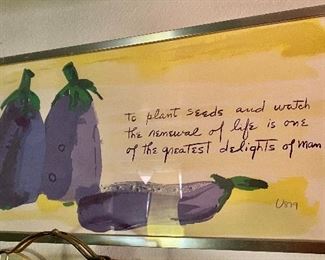 to plant seeds and watch
the renewal of life is one
of the greatest delights of man
Vera